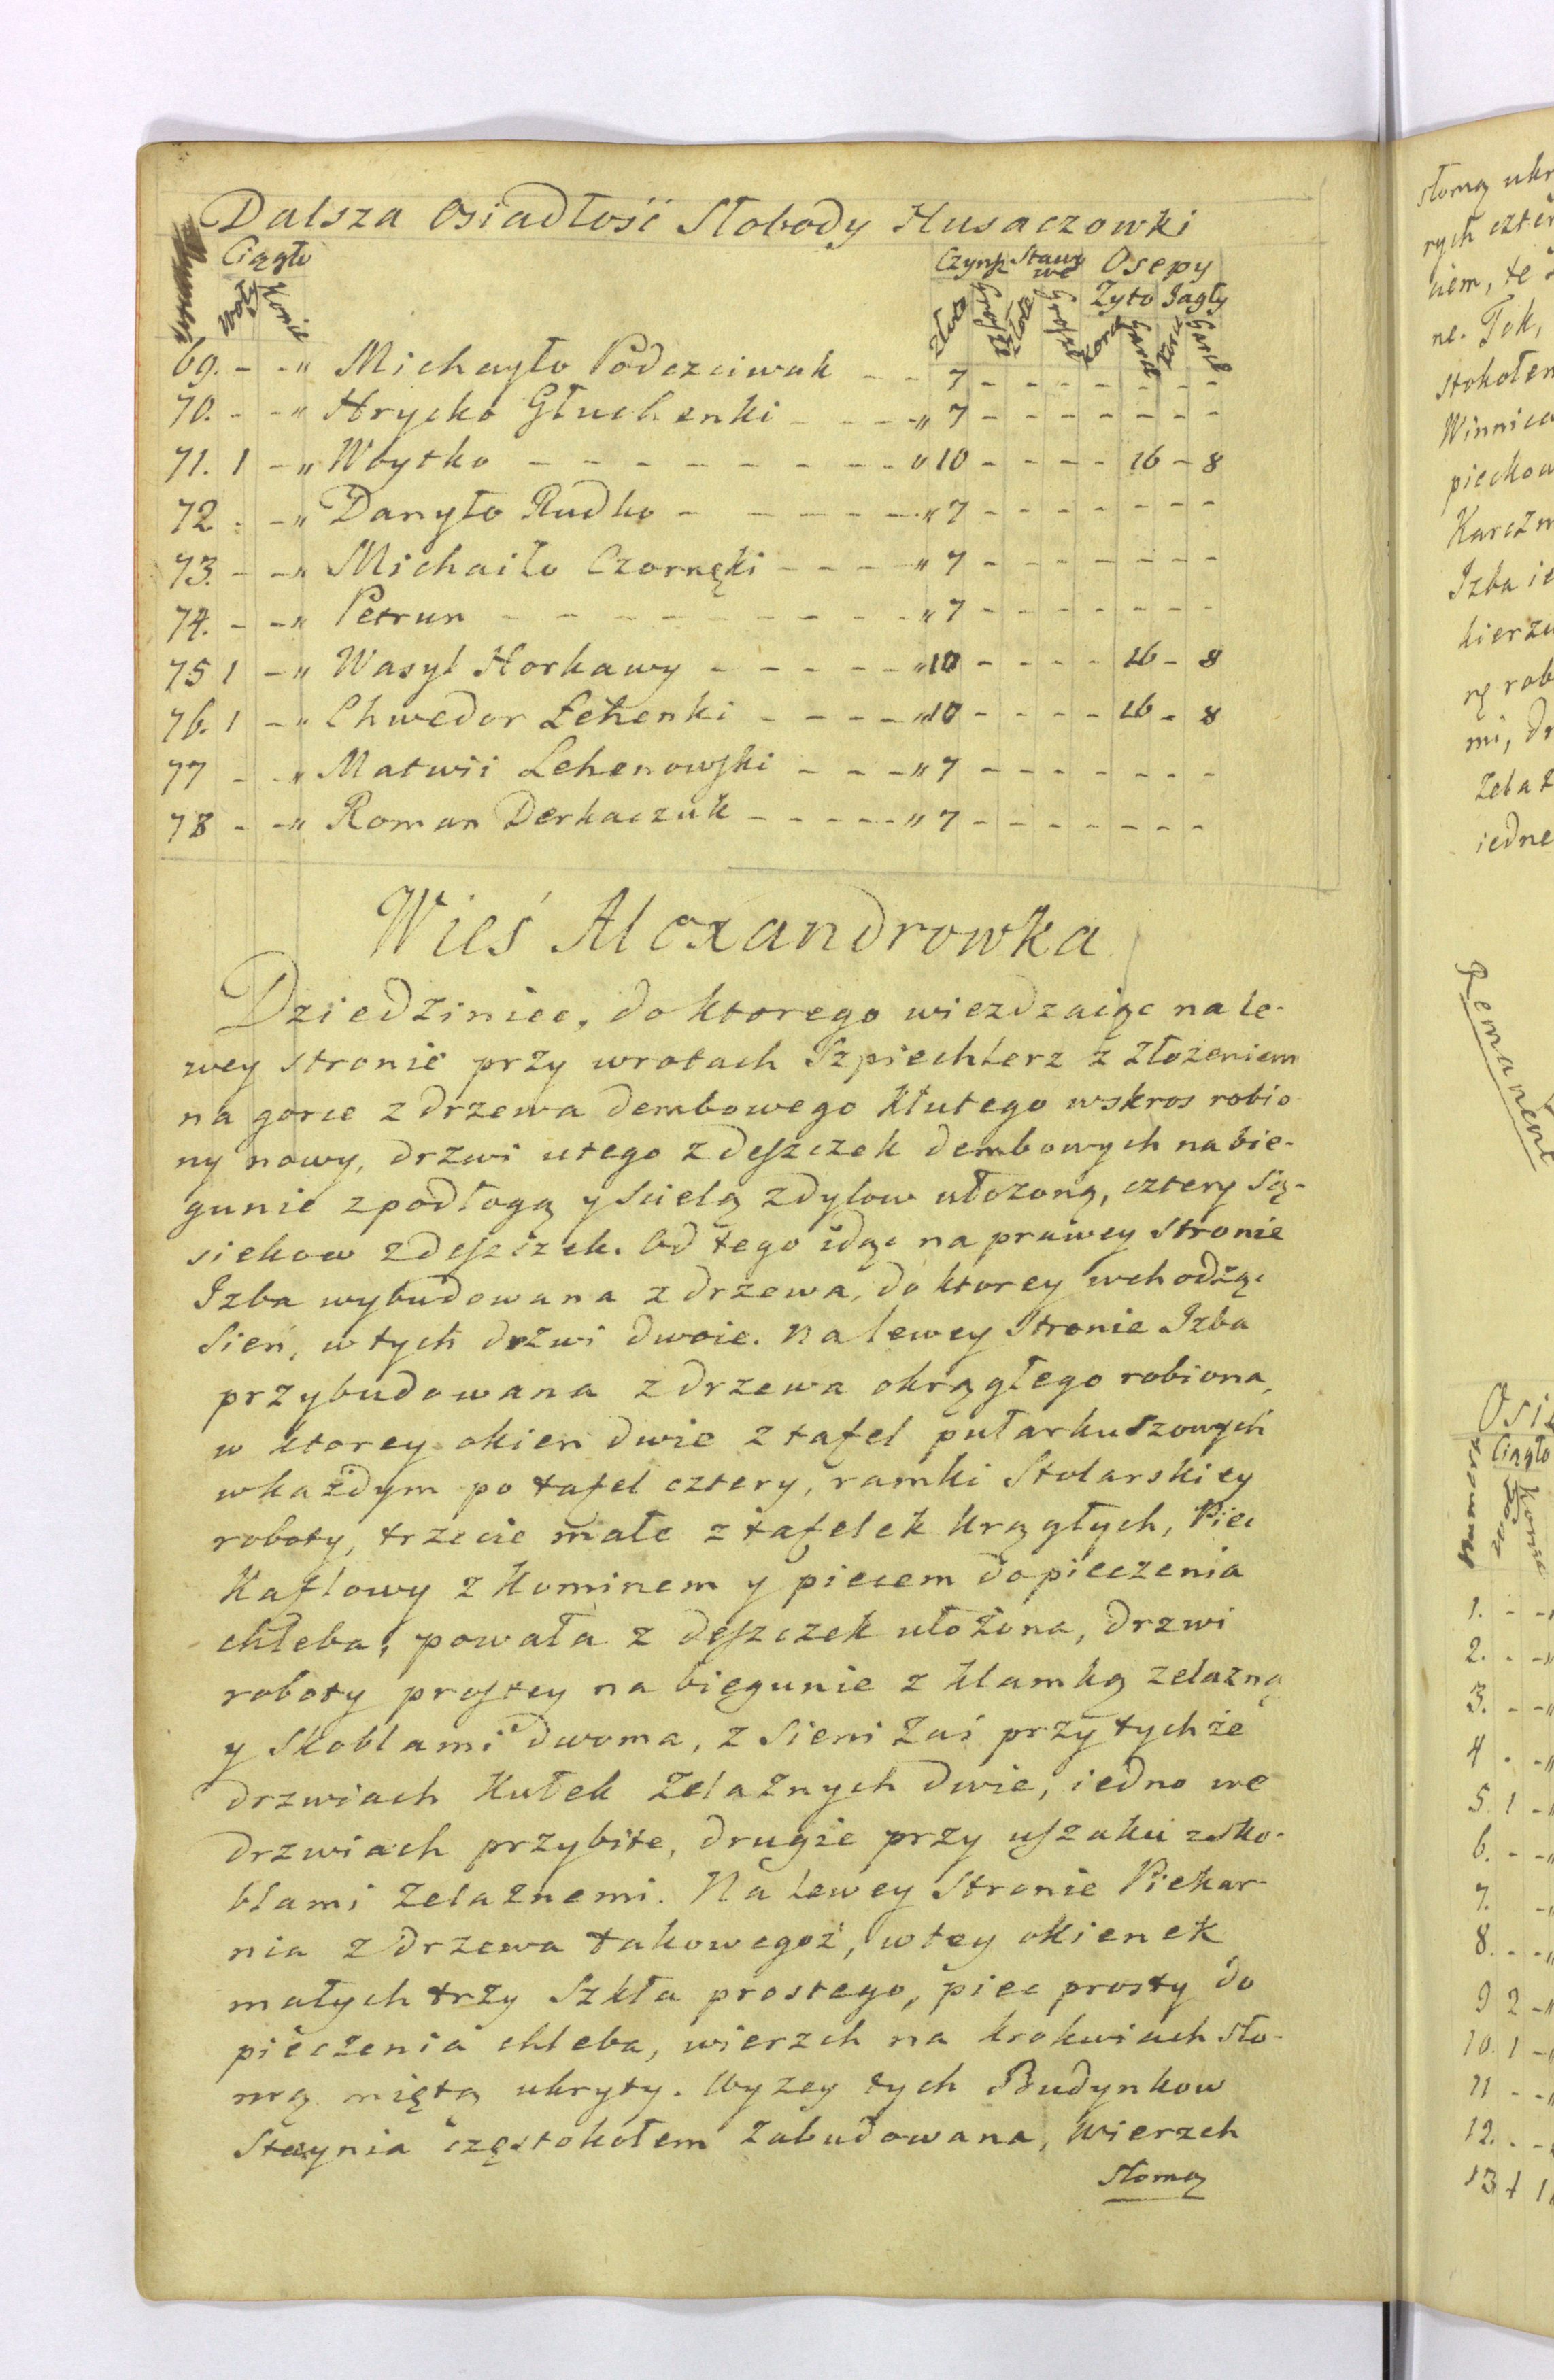 Dalsza Osiadłość Słobody Husaczowki
Numera Ciągło Czynsz Stawowe Osepy
Woły Konie Złote Grosze Złote Grosze Żyto Jagły
Korce Garce Korce Garce
69. - - " Michayło Podczciwak - - 7 - - - - - - -
70. - - " Hrycko Głuchenki - - - - " 7 - - - - - - -
71. 1 - " Woytko - - - - - - - - - " 10 - - - - 16 - 8
72. - - " Danyło Rudko - - - - - - " 7 - - - - - - -
73. - - " Michaiło Czornęki - - - - " 7 - - - - - - -
74. - - " Petrun - - - - - - - - - " 7 - - - - - - -
75 1 - " Wasyl Horkawy - - - - - " 10 - - - - 16 - 8
76. 1 - " Chwedor Lehenki - - - - " 10 - - - - 16 - 8
77 - - " Matwii Lehenowski - - - " 7 - - - - - - -
78 - - " Roman Derkaczuk - - - - - " 7 - - - - - - -
Wieś Alexandrowka
Dziedziniec, do ktorego wiezdzaiąc na le-
wey stronie przy wrotach Szpiechlerz z złożeniem
na gorce z drzewa dembowego kłutego wskros robio
ny nowy, drzwi utego z deszczek dembowych na bie-
gunie z podłogą y scielą z dylow ułozoną, cztery są-
siekow z deszczek. Od tego idąc na prawey stronie
Izba wybudowana z drzewa, do ktorey wchodżąc
Sień, w tych drzwi dwoie. Na lewey stronie Izba
przybudowana z drzewa okrągłego robiona,
w ktorey okien dwie z tafel pułarkuszowych
wkażdym po tafel cztery, ramki Stolarskiey
roboty, trzecie małe z tafelek krągłych, Piec
Kaflowy z Kominem y piecem do pieczenia
chleba, powała z deszczek ułożona, drzwi
roboty prostey na biegunie z klamką zelazną
y skoblami dwoma, z Sieni zaś przy tychże
drzwiach Kułek żelaznych dwie, iedno we
drzwiach przybite, drugie przy uszaku z sko-
blami żelaznemi. Na lewey Stronie Piekar-
nia z drzewa takowegoż, w tey okienek
małych trzy szkła prostego, piec prosty do
pieczenia chleba, wierzch na krokwiach sło-
mą miętą ukryty. Wyżey tych Budynkow
Staynia częstokołem zabudowana, wierzch
słomą
słomą ukr
rych czter
ciem, te
ne. Tok,
stokołem
Winnica
pieckow
Karczm
Izba ie
kierzu
nę rob
mi, dr
żelaz
iedne
Remanent
Osi
Ciągło
Numera Woły Konie
1. - -
2. - - "
3. - - "
4 - - "
5. 1 - "
6. - - "
7. - "
8. - - "
9 2 - "
10. 1 - "
11 - - "
12. - -
13. 1 1